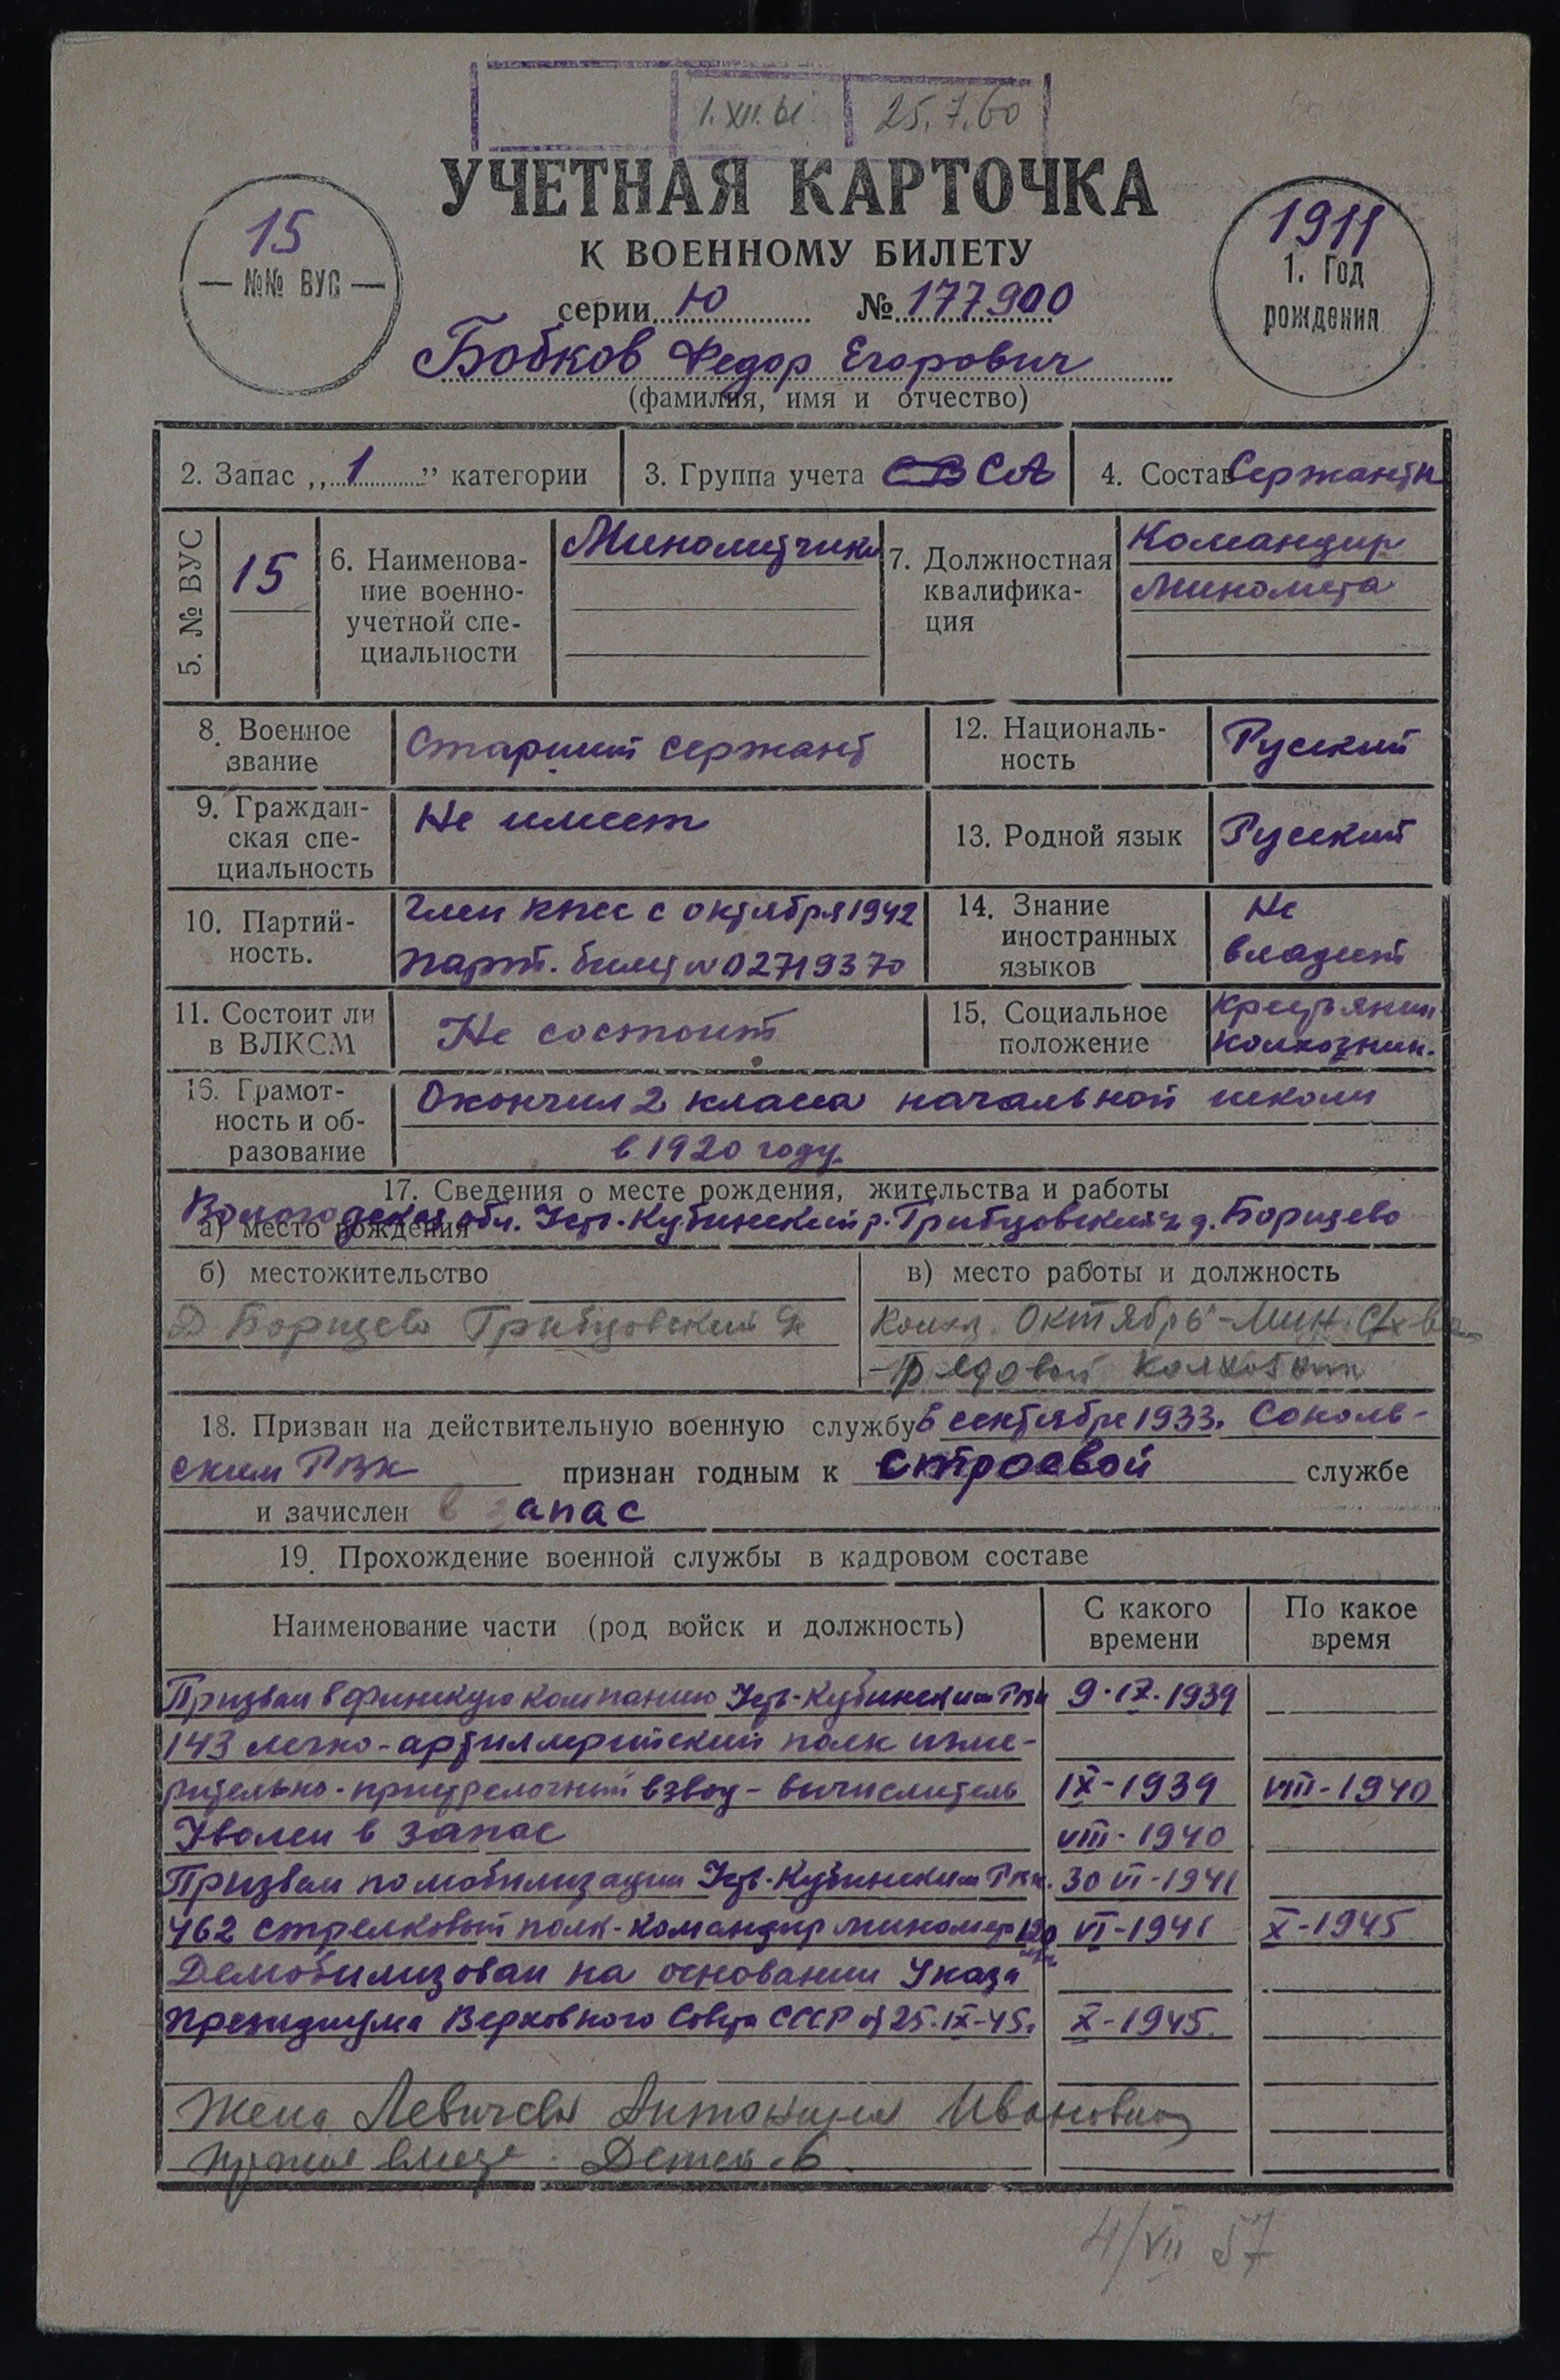 1.XII.61 25.7.60
УЧЕТНАЯ КАРТОЧКА
К ВОЕННОМУ БИЛЕТУ
15
— №№ ВУС —
1911
1. Год
рождения
серии Ю № 177900
Бобков Федор Егорович
(фамилия, имя и отчество)
2. Запас „ 1 ” категории
3. Группа учета СВ СА
4. Состав Сержанты
5. № ВУС
15
6. Наименова-
ние военно-
учетной спе-
циальности
Минометчики
7. Должностная
квалифика-
ция
Командир
миномета
8. Военное
звание
Старший сержант
12. Националь-
ность
Русский
9. Граждан-
ская спе-
циальность
Не имеет
13. Родной язык
Русский
10. Партий-
ность.
Член КПСС с октября 1942
парт. билет № 02719370
14. Знание
иностранных
языков
Не
владеет
11. Состоит ли
в ВЛКСМ
Не состоит
15. Социальное
положение
Крестьянин
колхозник.
16. Грамот-
ность и об-
разование
Окончил 2 класса начальной школы
в 1920 году.
17. Сведения о месте рождения, жительства и работы
а) место рождения Вологодская обл. Усть-Кубинский р. Грибцовский д. Борщево
б) местожительство
Д Борщево Грибцовский
в) место работы и должность
Колх. Октябрь - Мин. С/х-ва
- Рядовой колхозник
18. Призван на действительную военную службу 6 сентября 1933. Соколь-
ским РВК признан годным к строевой службе
и зачислен в запас
19. Прохождение военной службы в кадровом составе
Наименование части (род войск и должность)
С какого
времени
По какое
время
Призван в финскую компанию Усть-Кубинским РВК 9.IX.1939
143 легко-артиллерийский полк изме-
рительно-пристрелочный взвод - вычислитель IX-1939 VIII-1940
Уволен в запас VIII-1940
Призван по мобилизации Усть-Кубинским РВК. 30 VI-1941
462 стрелковый полк - командир миномета 120 VI-1941 X-1945
Демобилизован на основании Указа
Президиума Верховного Совета СССР от 25-IX-45. X-1945.
Жена Левичева Антонина Ивановна
прожив. вместе. Детей - 6
4/VII 57